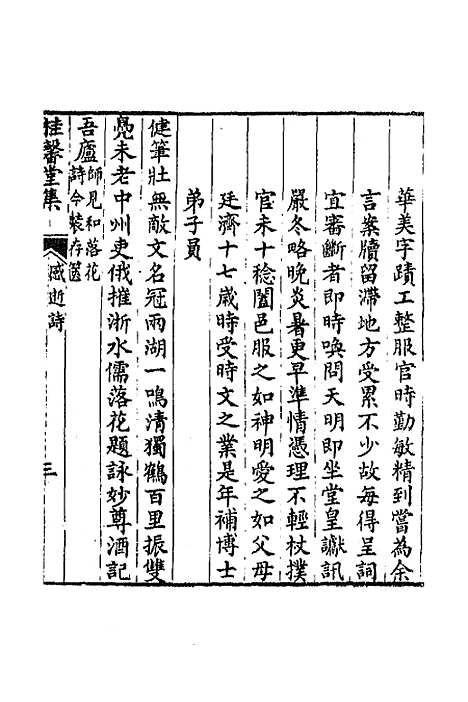 華美字蹟工整服官時勤敏精到嘗為余
言案牘留滯地方受累不少故每得呈詞
宜審斷者即時喚問天明即坐堂皇讞訊
嚴冬略晚炎暑更早準情憑理不輕杖撲
官未十稔闔邑服之如神明愛之如父母
廷濟十七歲時受時文之業是年補博士
弟子員
健筆壯無敵文名冠兩湖一鳴清獨鶴百里振雙
鳧未老中州吏俄摧浙水儒落花題詠妙尊酒記
吾廬師見和落花
詩今裝存篋
桂馨堂集
感逝詩
三